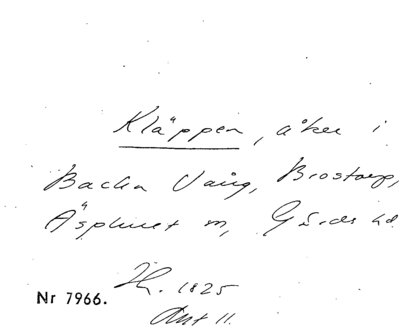 Kläppen, åker i
Backa Vång, Brostorp,
Äsphult sn, Gärds hd.
Nr 7966.
1825
Akt 11.